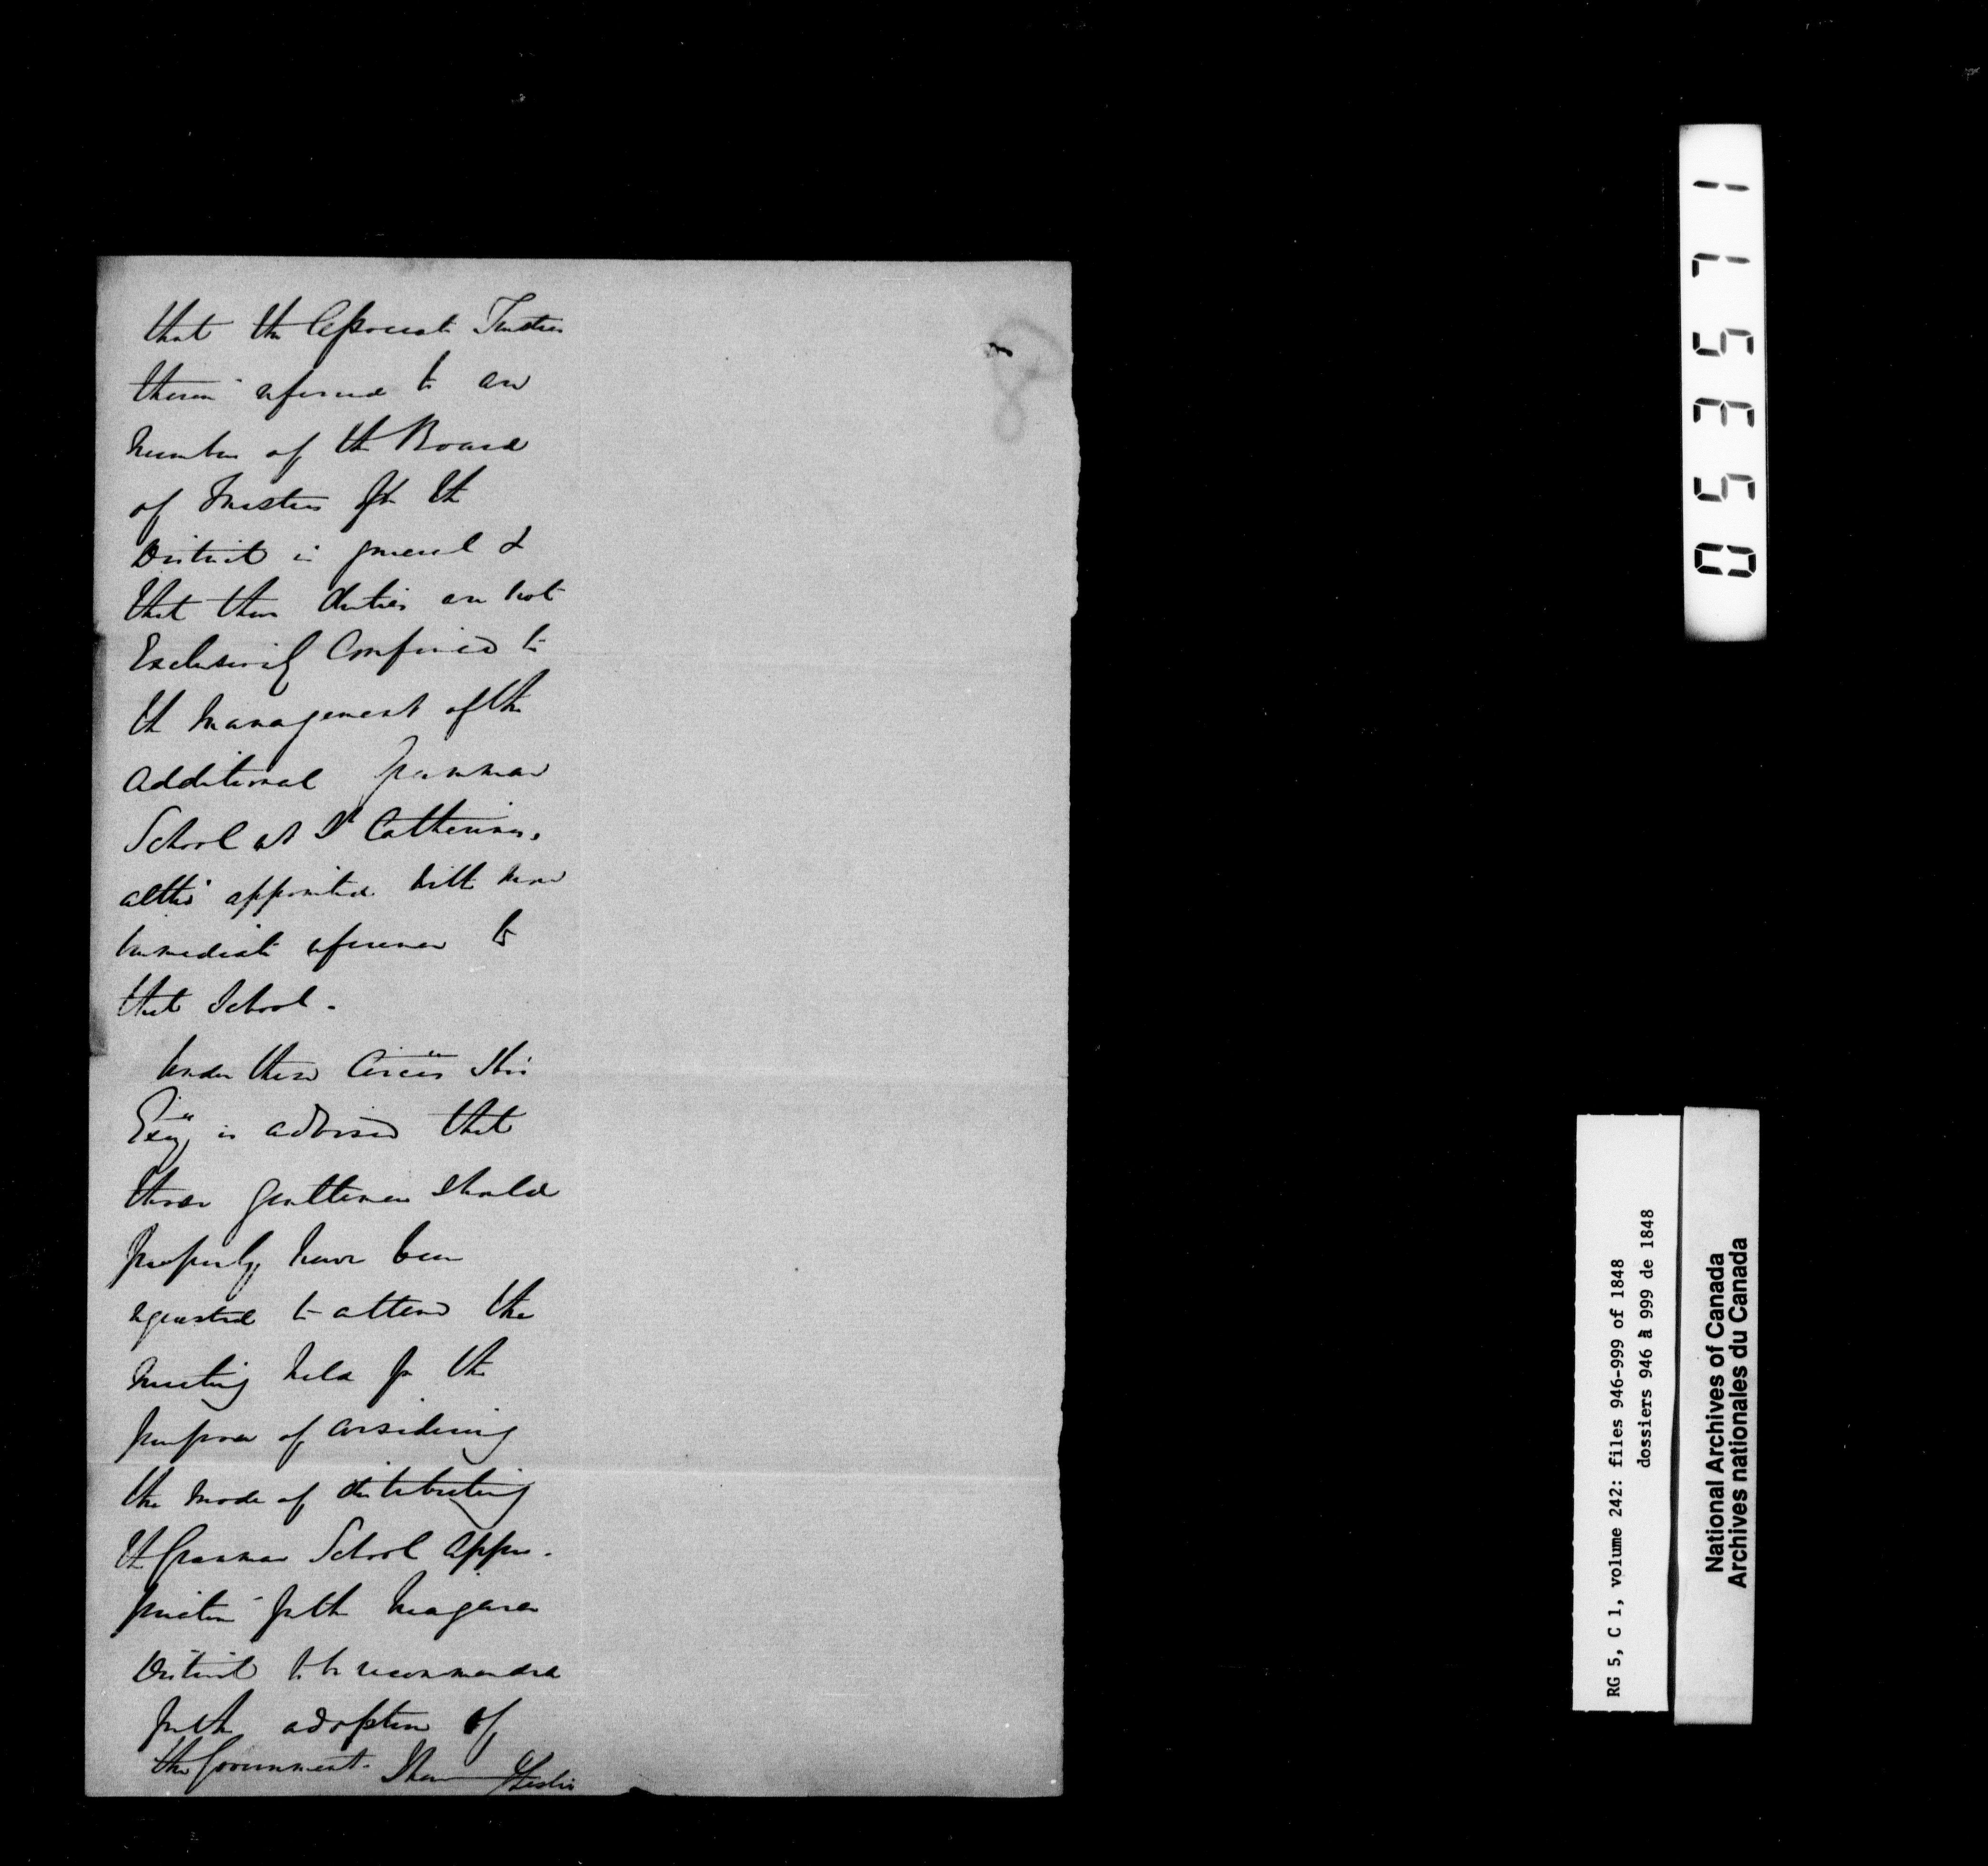 that the Associate Trustees
therein referred to are
Members of the Board
of Trustees for the
District in general &
that their duties are not
Exclusively Confined to
the Management of the
Additional Grammar
School at St Catherines,
altho' appointed with more
immediate reference to
that School -
Under these Circes His
Excy is advised that
those Gentlemen should
properly have been
requested to attend the
Meeting held for the
purpose of considering
the Mode of distributing
the Grammar School Appro-
priation for the Niagara
District to be recommended
for the adoption of
the Government - I have
175350
RG 5, C 1, volume 242: files 946-999 of 1848
dossiers 946 à 999 de 1848
National Archives of Canada
Archives nationales du Canada